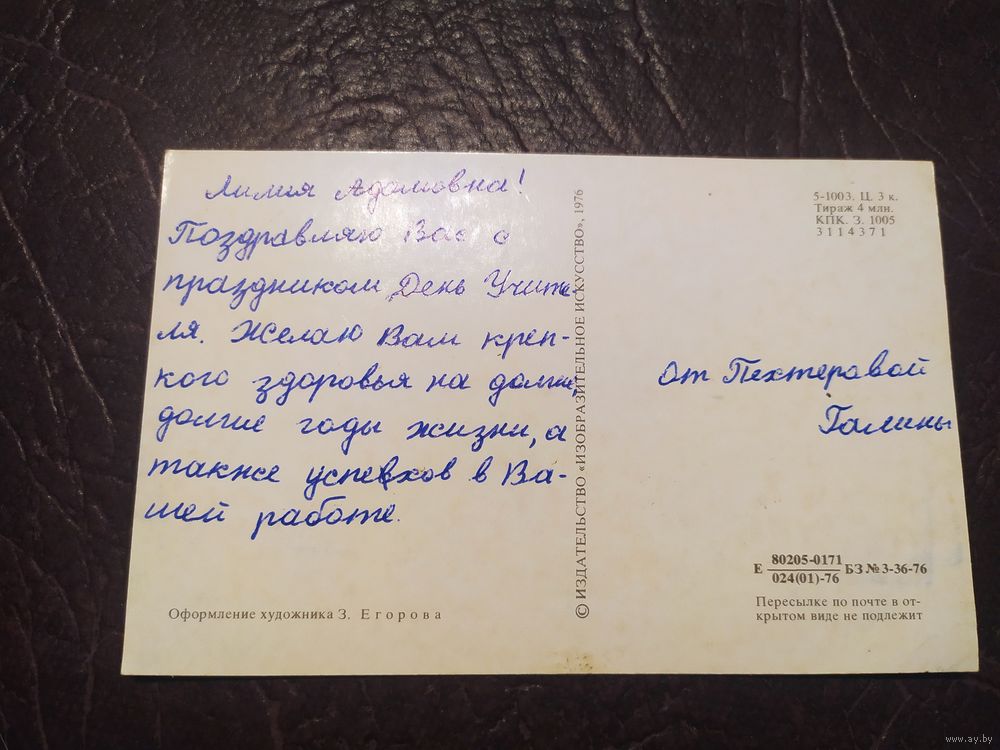 Лилия Адамовна!
Поздравляю Вас с
праздником День Учите-
ля. Желаю Вам креп-
кого здоровья на долгие,
долгие годы жизни, а
также успехов в Ва-
шей работе.
Оформление художника З. Егорова
© ИЗДАТЕЛЬСТВО «ИЗОБРАЗИТЕЛЬНОЕ ИСКУССТВО», 1976
5-1003. Ц. 3 к.
Тираж 4 млн.
КПК. З. 1005
3114371
от Пехтеравой
Галины
Е 80205-0171 БЗ № 3-36-76
024(01)-76
Пересылке по почте в от-
крытом виде не подлежит
www.ay.by